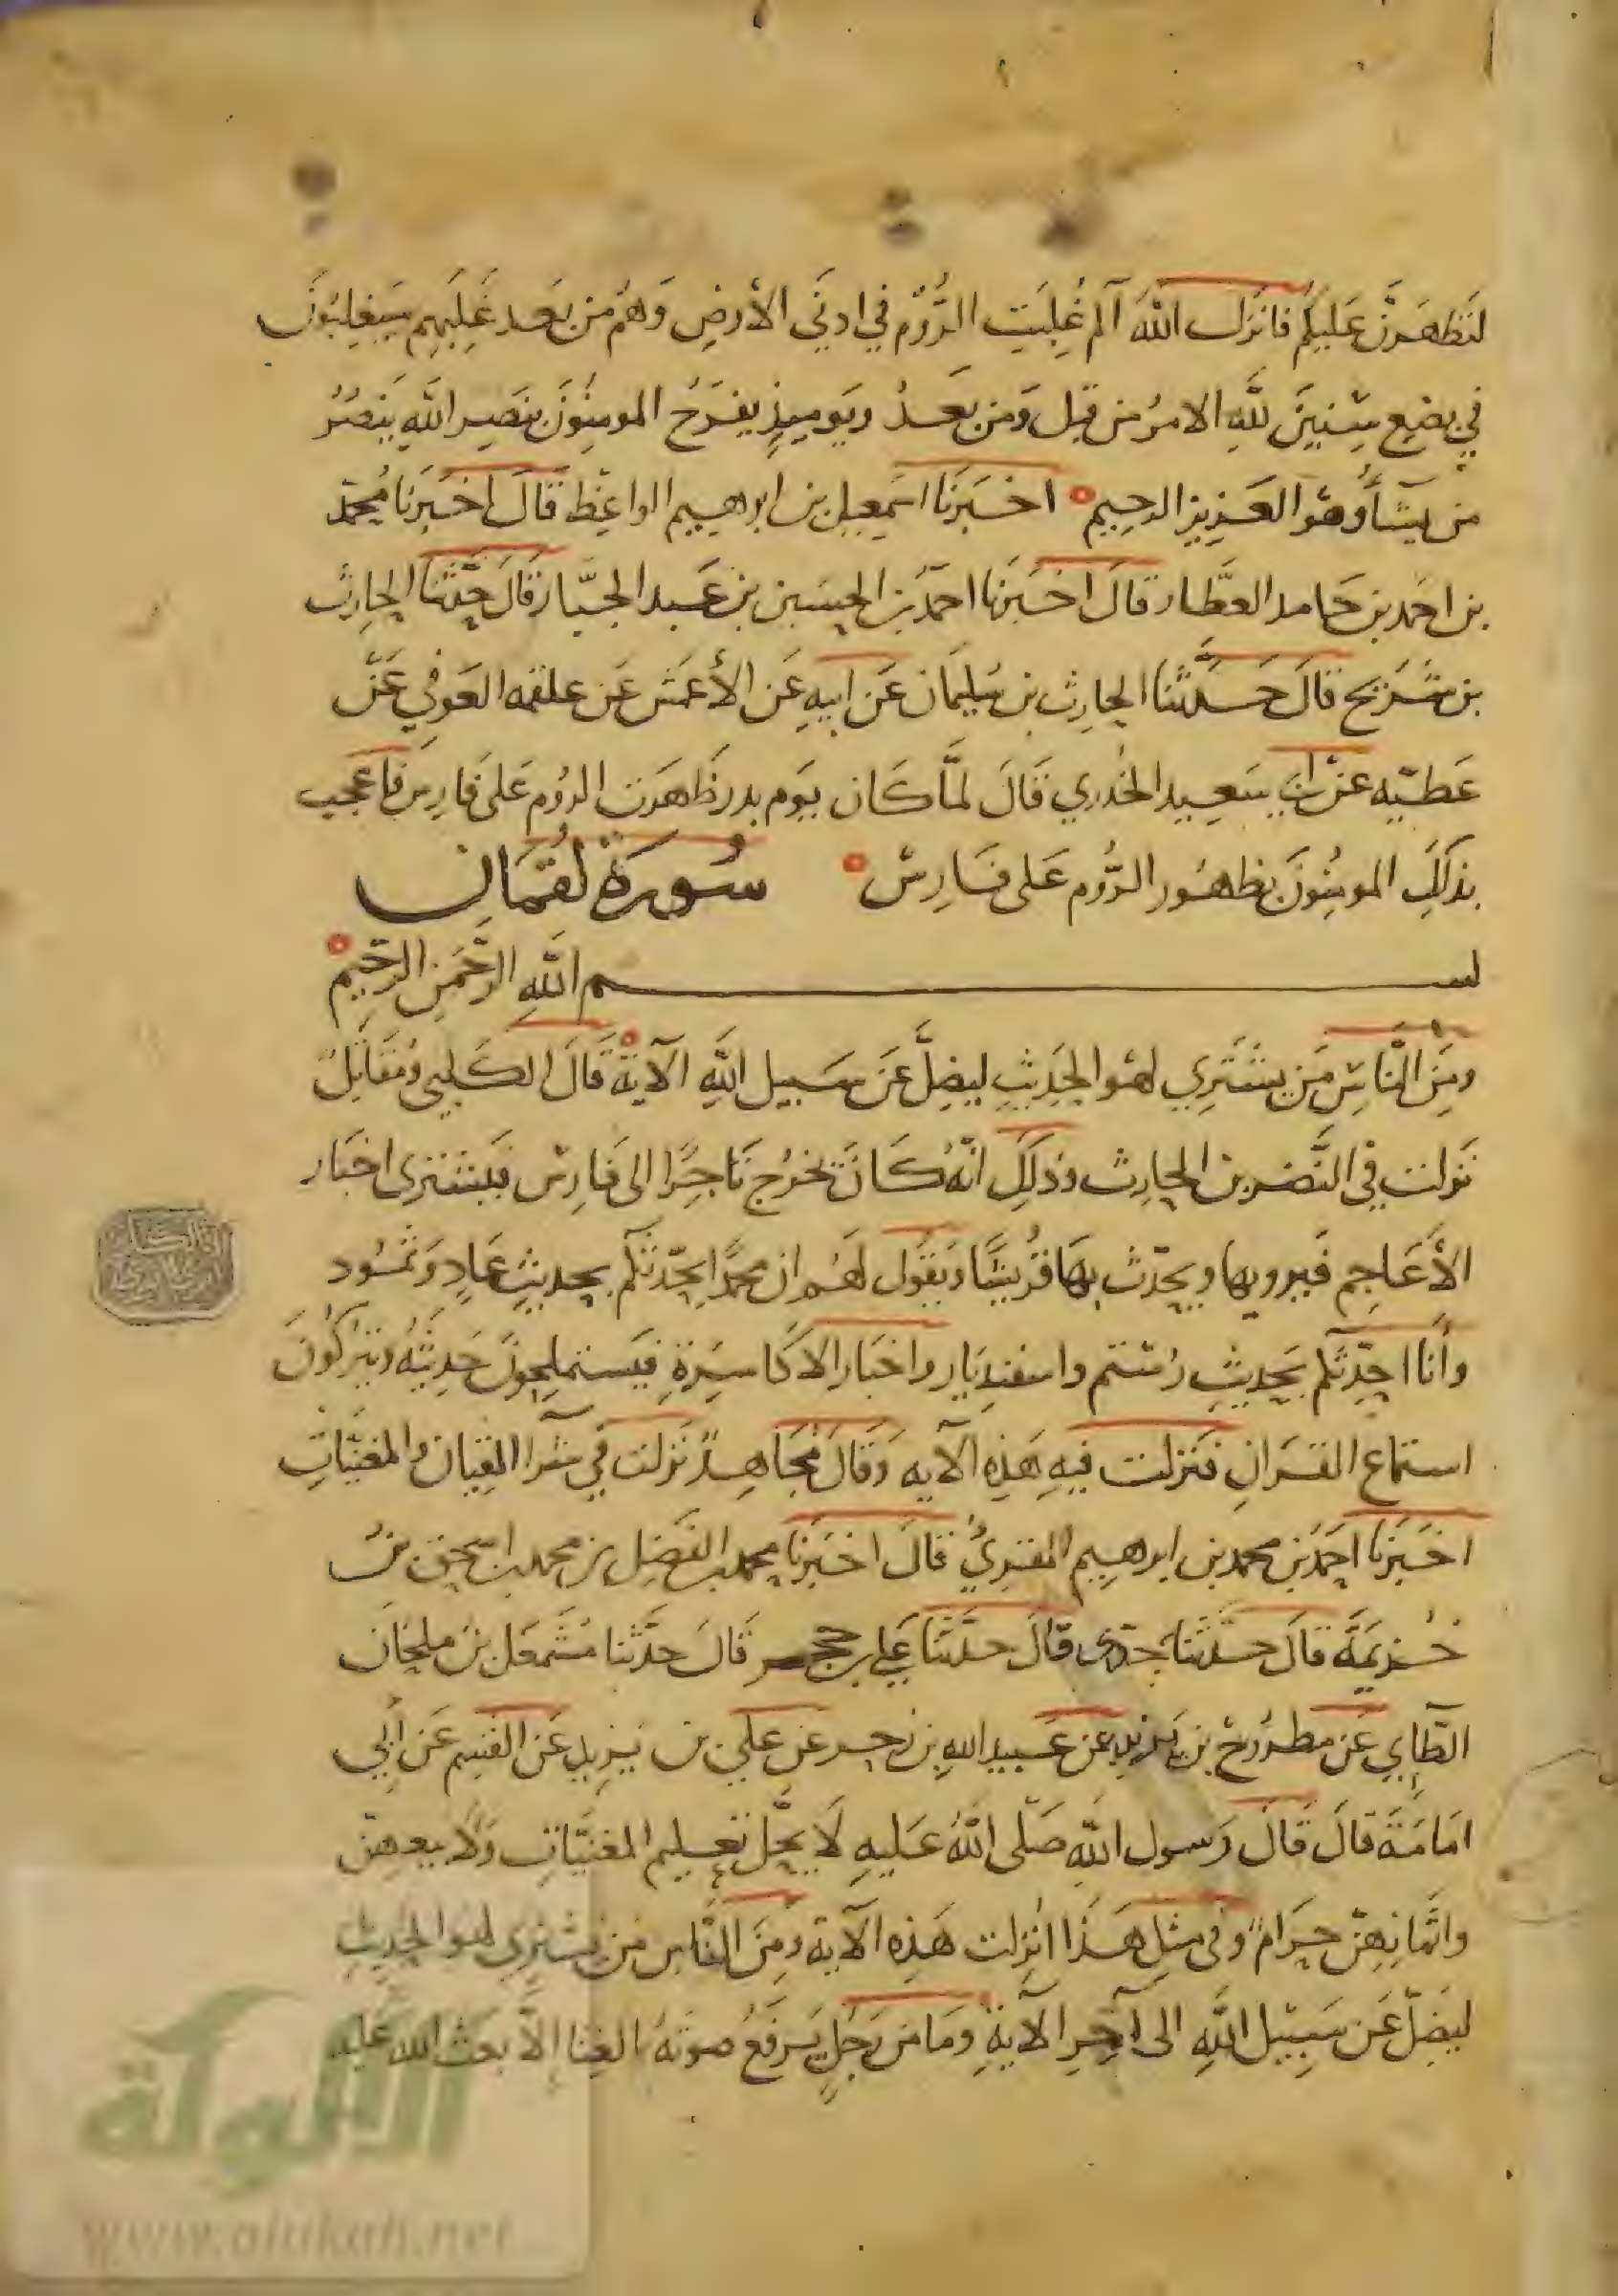 لنظهرن عليكم فانزل الله الم غلبت الروم في ادنى الارض وهم من بعد غلبهم سيغلبون
في بضع سنين لله الامر من قبل ومن بعد ويوميذ يفرح المومنون بنصر الله ينصر
من يشأ وهو العزيز الرحيم اخبرنا اسمعيل بن ابرهيم الواعظ قال اخبرنا محمد
بن احمد بن حامد العطار قال اخبرنا احمد بن الحسين بن عبد الجبار قال حدثنا الحارث
بن شريح قال حدثنا الحارث بن سليمان عن ابيه عن الأعمش عن علقمه العوفي عن
عطيه عن ابي سعيد الخدري قال لما كان يوم بدر ظهرت الروم على فارس فاعجب
بذلك المومنون بظهور الروم على فارس سورة لقمان
بسم الله الرحمن الرحيم
ومن الناس من يشتري لهو الحديث ليضل عن سبيل الله الآية قال الكلبي ومقاتل
نزلت في النضر بن الحارث وذلك انه كان يخرج تاجرا الى فارس فيشترى اخبار
الأعاجم فيرويها ويحدث بها قريشا ويقول لهم ان محمدا يحدثكم بحديث عاد وثمود
وأنا احدثكم بحديث رستم واسفنديار واخبار الاكاسرة فيستملحون حديثه ويتركون
استماع القران فنزلت فيه هذه الآيه وقال مجاهد نزلت في شرا القيان والمغنيات
اخبرنا احمد بن محمد بن ابرهيم المقري قال اخبرنا محمد بن الفضل بن محمد بن اسحق بن
خزيمة قال حدثنا جدي قال حدثنا علي بن حجر قال حدثنا مشمعل بن ملحان
الطايي عن مطرح بن يزيد عن عبيد الله بن زحر عن علي بن يزيد عن القسم عن أبي
امامة قال قال رسول الله صلى الله عليه لا يحل تعليم المغنيات ولا بيعهن
واثمانهن حرام وفي مثل هذا انزلت هذه الآية ومن الناس من يشتري لهو الحديث
ليضل عن سبيل الله الى آخر الآية وما من رجل يرفع صوته بالغنا إلا بعث الله عليه
الألوكة
www.alukah.net